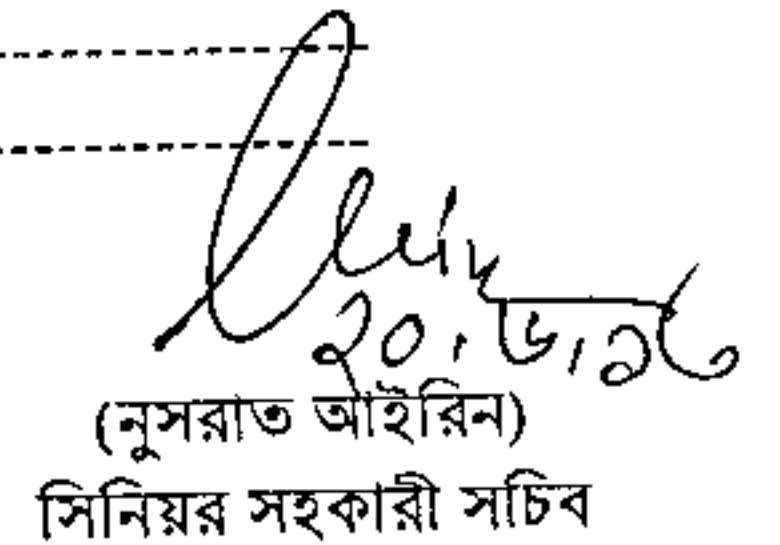 ২০.৬.১৬
(নুসরাত আইরিন)
সিনিয়র সহকারী সচিব